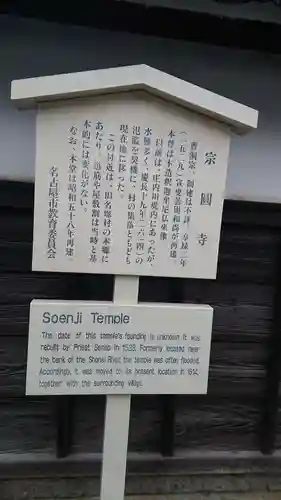 宗圓寺
曹洞宗。創建は不詳。享禄二年
(一五二九)宣叟善廓和尚が再建。
本尊は木造釈迦牟尼仏坐像
以前は、庄内川堤内にあったが、
水難多く、慶長十九年(一六一四)の
氾濫を契機に、村の集落とともに
現在地に移った。
この付近は、旧名塚村の本郷に
あたり、道筋や屋敷割は当時と基
本的には変化がない。
なお、本堂は昭和五十八年再建。
名古屋市教育委員会
Soenji Temple
The date of this temple's founding is unknown. It was
rebuilt by Priest Senso in 1529. Formerly located near
the bank of the Shonai River, the temple was often flooded.
Accordingly, it was moved to its present location in 1614,
together with the surrounding village.